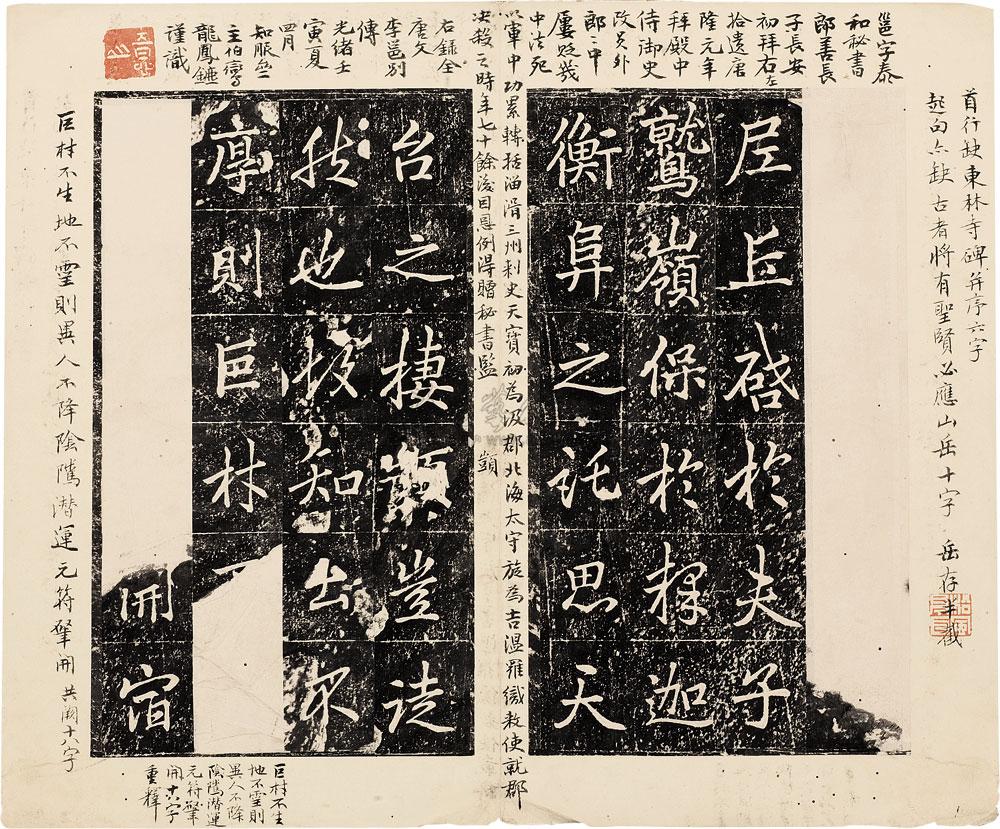 首行缺東林寺碑并序六字
起句亦缺古者將有聖賢必應山岳十字 岳存半截
邕字泰
和秘書
郎善長
子長安
初拜右左
拾遺唐
隆元年
拜殿中
侍御史
改員外
郎中
屢貶幾
中法死
以軍中功累轉括淄滑三州刺史天寶初為汲郡北海太守旋為吉溫羅織敕使就郡
決殺之時年七十餘後因恩例得贈秘書監
右錄全
唐文
李邕別
傳
光緒壬
寅夏
四月
知服
主伯鸞
龍鳳鑣
謹識
尼丘啟於夫子
鷲嶺保於釋迦
衡阜之託思天
台之棲顗豈徒
顗
然也故知土不
厚則巨材
開宿
巨材不生地不靈則異人不降陰騭潛運元符肇開 共闕十八字
巨材不生
地不靈則
異人不降
陰騭潛運
元符肇
開十六字
重釋